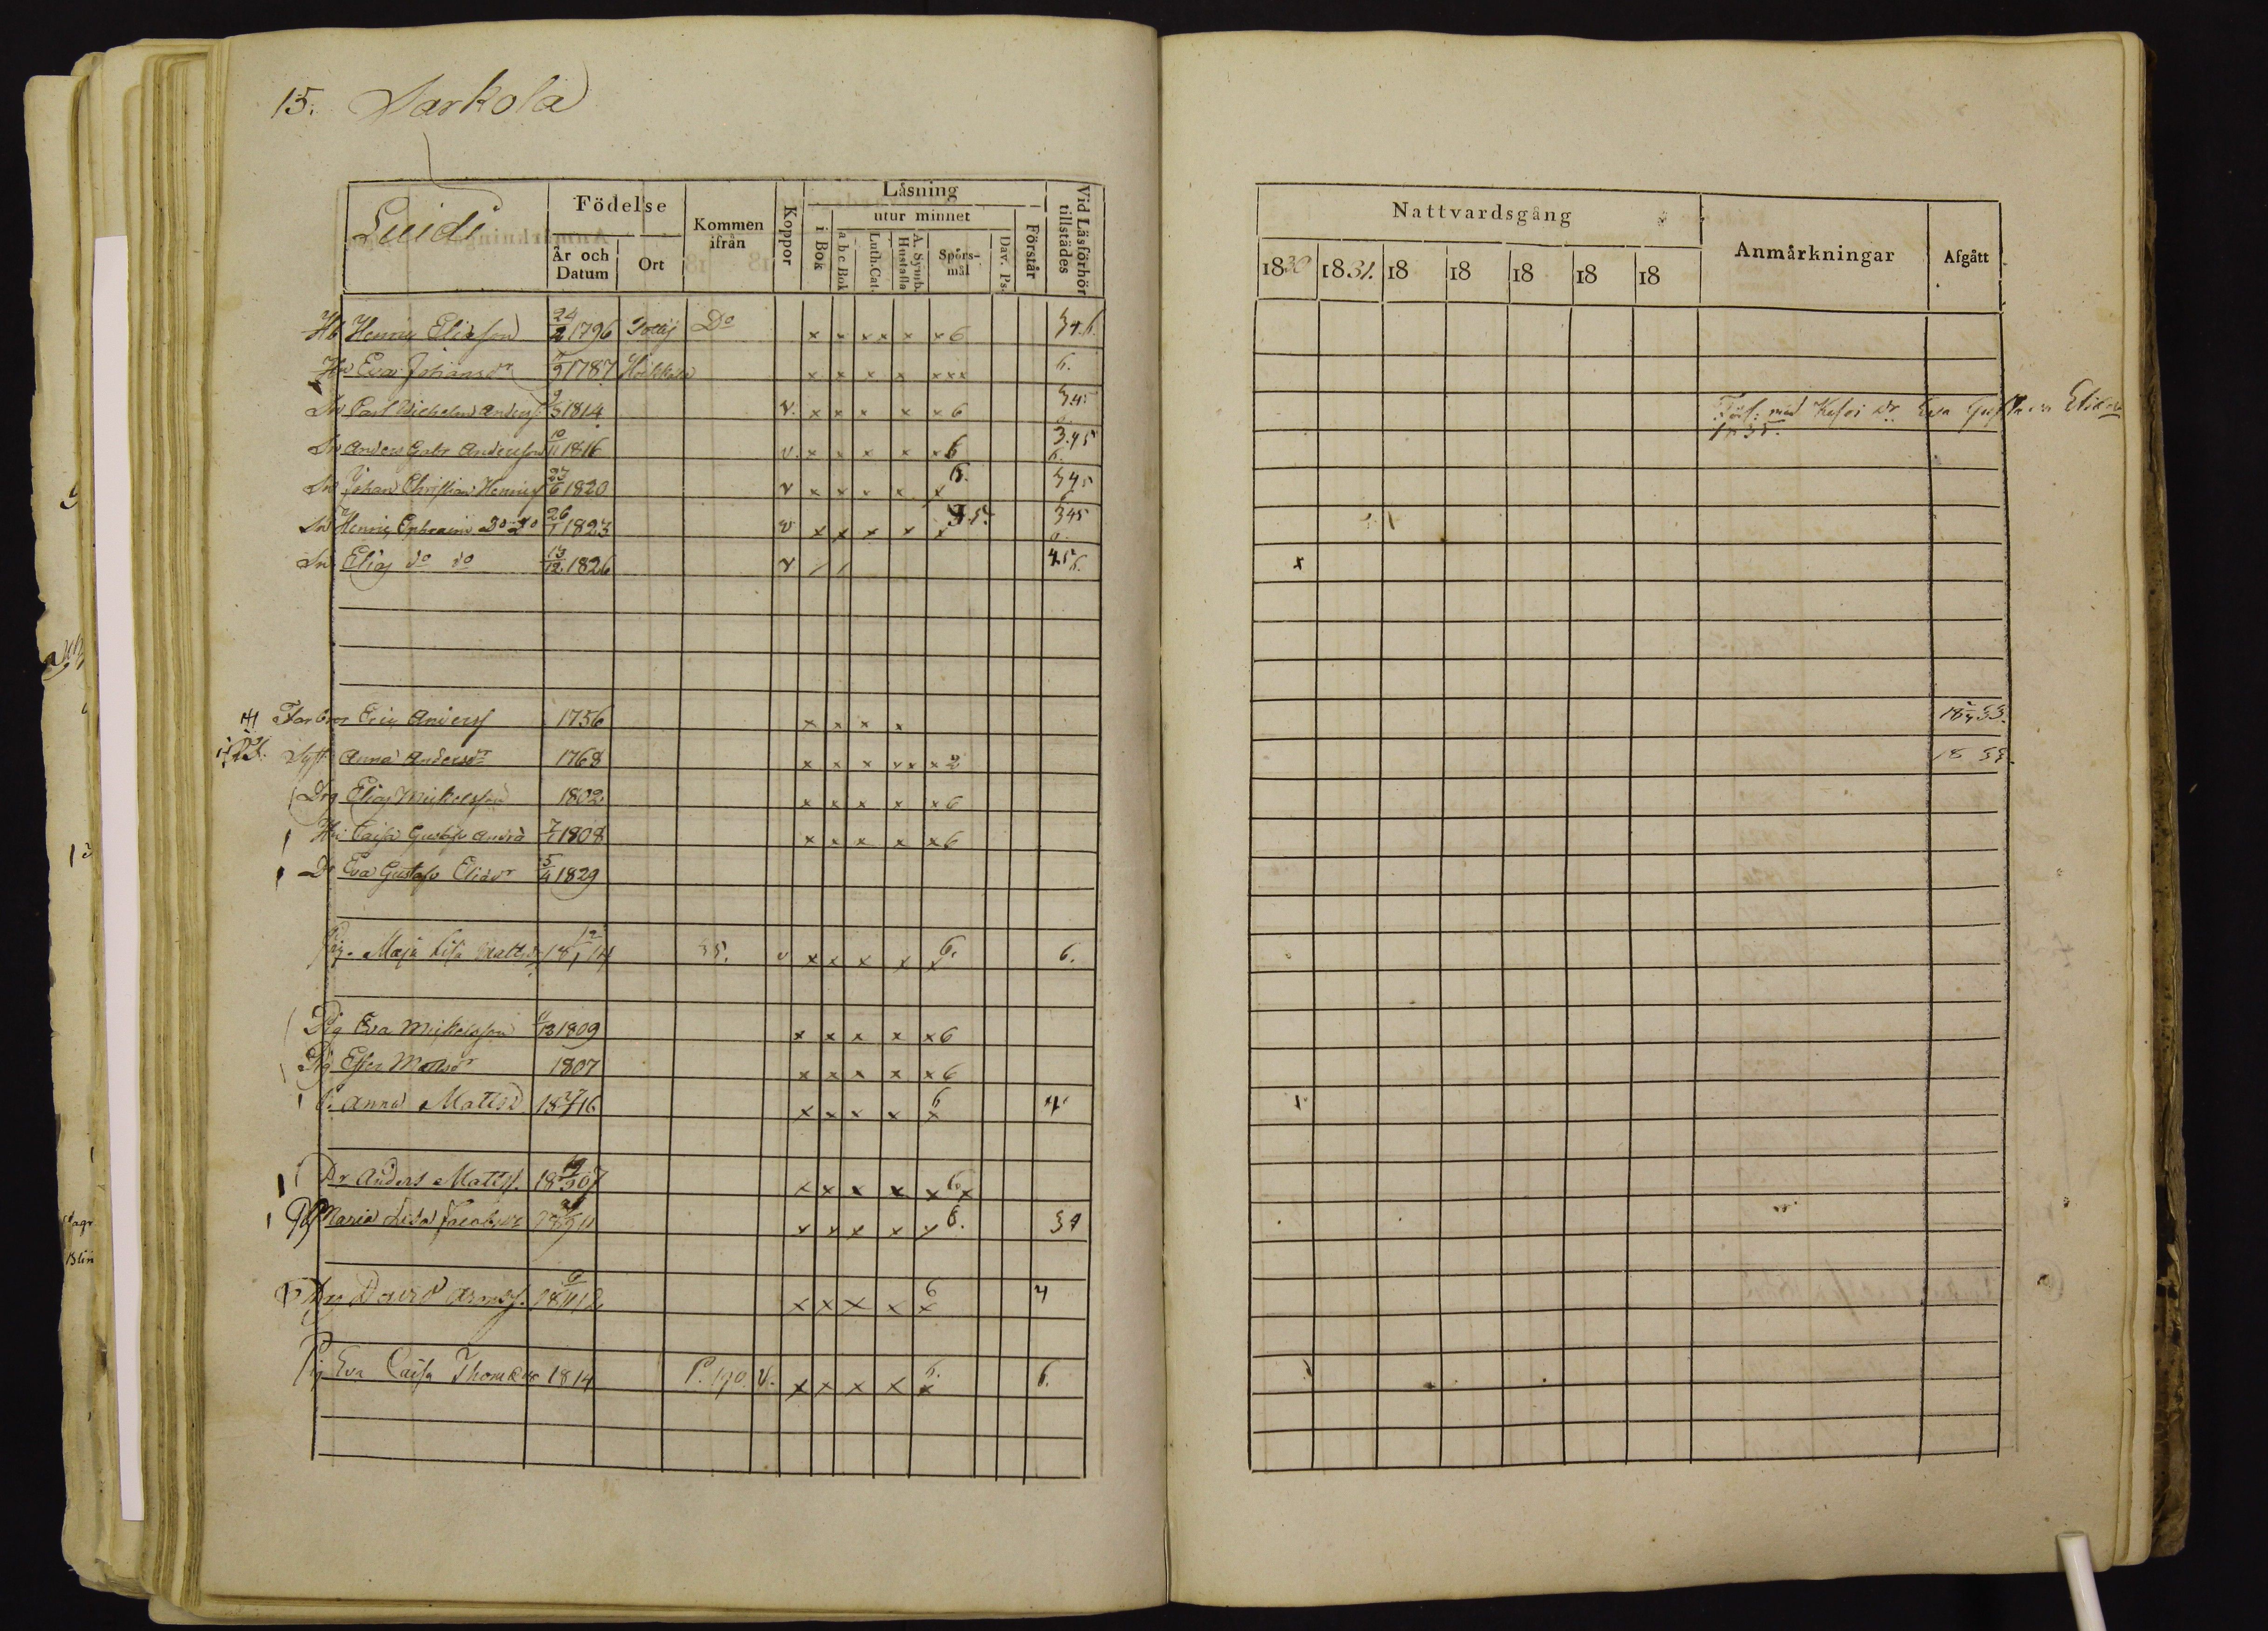 15. Sarkola
Luidi
Födelse
År och Datum
Ort
Kommen ifrån
Koppor
Läsning
i Bok
utur minnet
a b c Bok
Luth. Cat.
A. Symb. Hustafla
Spörs-mål
Dav. Ps.
Förstår
Vid Läsförhör tillstädes
Hb Henric Eliasson 24/2 1796 Dº x x x x x x 6 34.6.
Hu Eva Johansdr 1787 x x x x x x x 6.
Sn Carl Wilhelm Anderss. 9/3 1814 v. x x x x x 6 345
Sn Anders Gabr Andersson 10/11 1816 v. x x x x x 6 3.45 6.
Sn Johan Christian Henrics 27/6 1820 v x x x x x 6. 345
Sn Henric Ephraim Do do 26/1 1823 v x x x x x 345 6.
Sn Elias do do 13/12 1826 v / / 4.5 6.
Farbror Eric Anderss 1756 x x x x
Syst. Anna Andersdr 1768 x x x x x x 2
Drg Elias Mickelsson 1802 x x x x x 6
Hu Caisa Gustafva 1808 x x x x x 6
Dr Eva Gustafv Eliadr 5/4 1829
Pig. Maja Lisa Mattsdr 18 12/1 14 35. v x x x x x 6. 6.
Pig Eva Mickelsson 1809 x x x x x 6
Pig Ester Mattsdr 1807 x x x x x 6
P. Anna Mattsd 18 16 x x x x x 6 4
Dr Anders Mattss. 18 07 x x x x x 6. x
Maria Lisa Jacobsdr x x x x x 6. 34
Drg David 18 12 x x x x x 6 4
Pig Eva Caisa Thomadr 1814 P. 190. v. x x x x x 6. 6.
Nattvardsgång
1830 1831. 18 18 18 18 18
Anmärkningar
Afgått
Förl: med Eva Gustava Eliadr
1835.
x
18 33.
18 33.